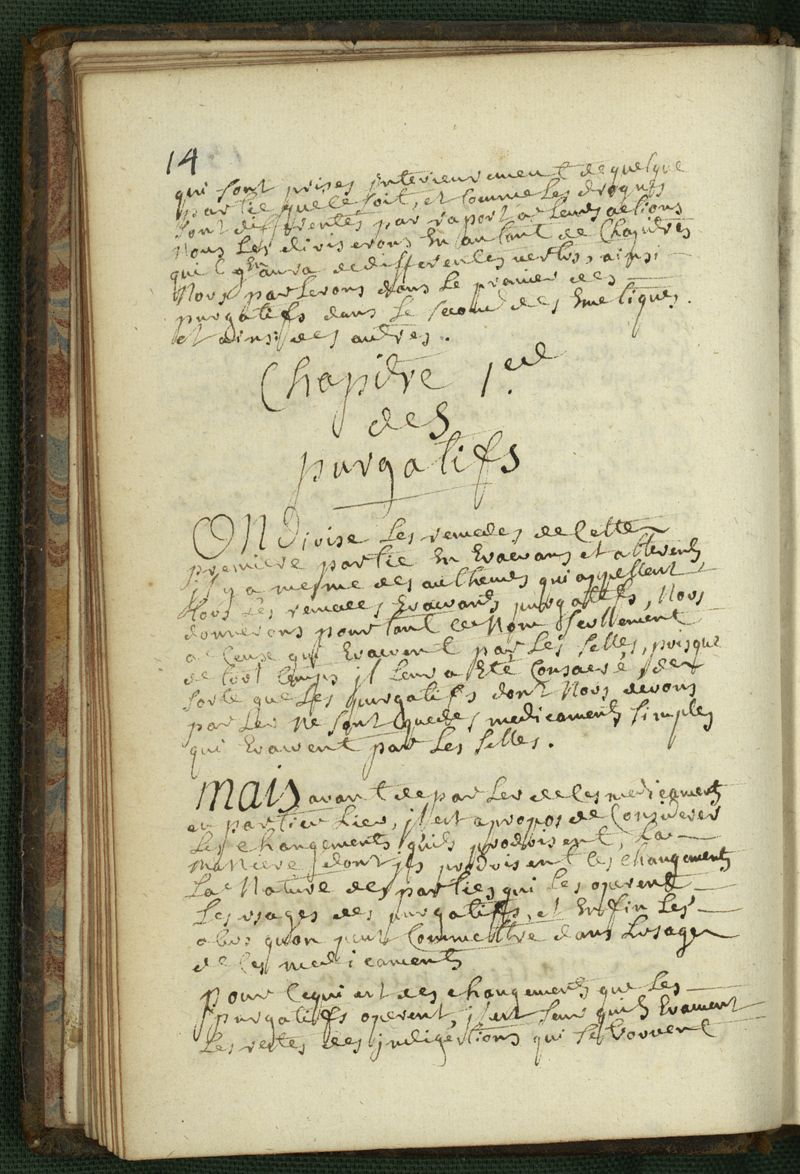 14
qui sont prises interieurement de quelque
partie quelle soit, et comme les drogues
sont differentes par raport a leurs actions
Nous les diviserons En autant de Chapitres
quil yen aura de differentes vertus, ainsi
Nous parlerons dans le premier des
purgatifs dans le second des Emetiques.
et ainsi des autres.
Chapitre 1.er
des
purgatifs
ON Divise les remedes de Cette
premiere partie En Evacuans et alterents
il y a mesme des autheurs qui appellent
tous les remedes Evacuants purgatifs, Nous
donnerons pourtant ce Nom seullement
a Ceux qui Evacuent par les selles, puisque
de tout temps il leur a Eté Consacré, de
sorte que les purgatifs dont Nous devons
parler ne sont que des medicaments simples
qui Evacuent par les selles.
Mais avant de parler de ces medicaments
en particulier, il est a propos de Considerer
les changements quils produisent, La
Maniere dont ils produisent les changements
La Nature des parties qui les operent
Les usages des purgatifs, et Enfin les
abus quon peut Commettre dans lusage
de ces medicaments
pour ce qui est des changements que les
purgatifs operent, il est seur quils Evacuent
les restes des indigestions qui se trouvent